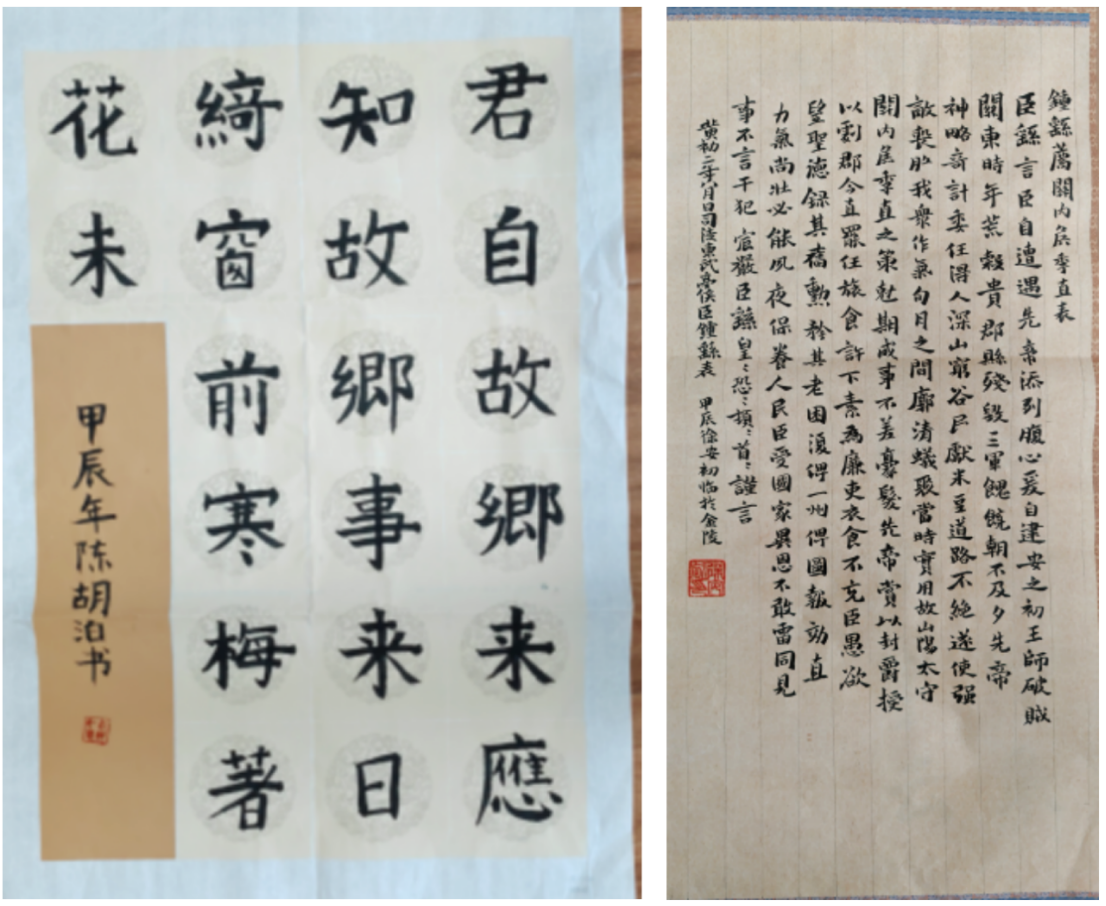 君自故鄉来應
知故鄉事来日
綺窗前寒梅著
花未
甲辰年陈胡泊书
鍾繇薦關内矦季直表
臣繇言臣自遭遇先帝忝列腹心爰自建安之初王師破賊
關東時年荒穀貴郡縣殘毀三軍餽饟朝不及夕先帝
神略奇計委任得人深山窮谷民獻米豆道路不絶遂使强
敵喪膽我衆作氣旬月之間廓清蟻聚當時實用故山陽太守
關内矦季直之策尅期成事不差豪髮先帝賞以封爵授
以劇郡今直罷任旅食許下素為廉吏衣食不充臣愚欲
望聖德録其舊勳矜其老困復俾一州俾圖報効直
力氣尚壯必能夙夜保養人民臣受國家異恩不敢雷同見
事不言干犯宸嚴臣繇皇〻恐〻頓〻首〻謹言
黄初二年八月日司隸東武亭侯臣鍾繇表 甲辰徐安初臨於金陵